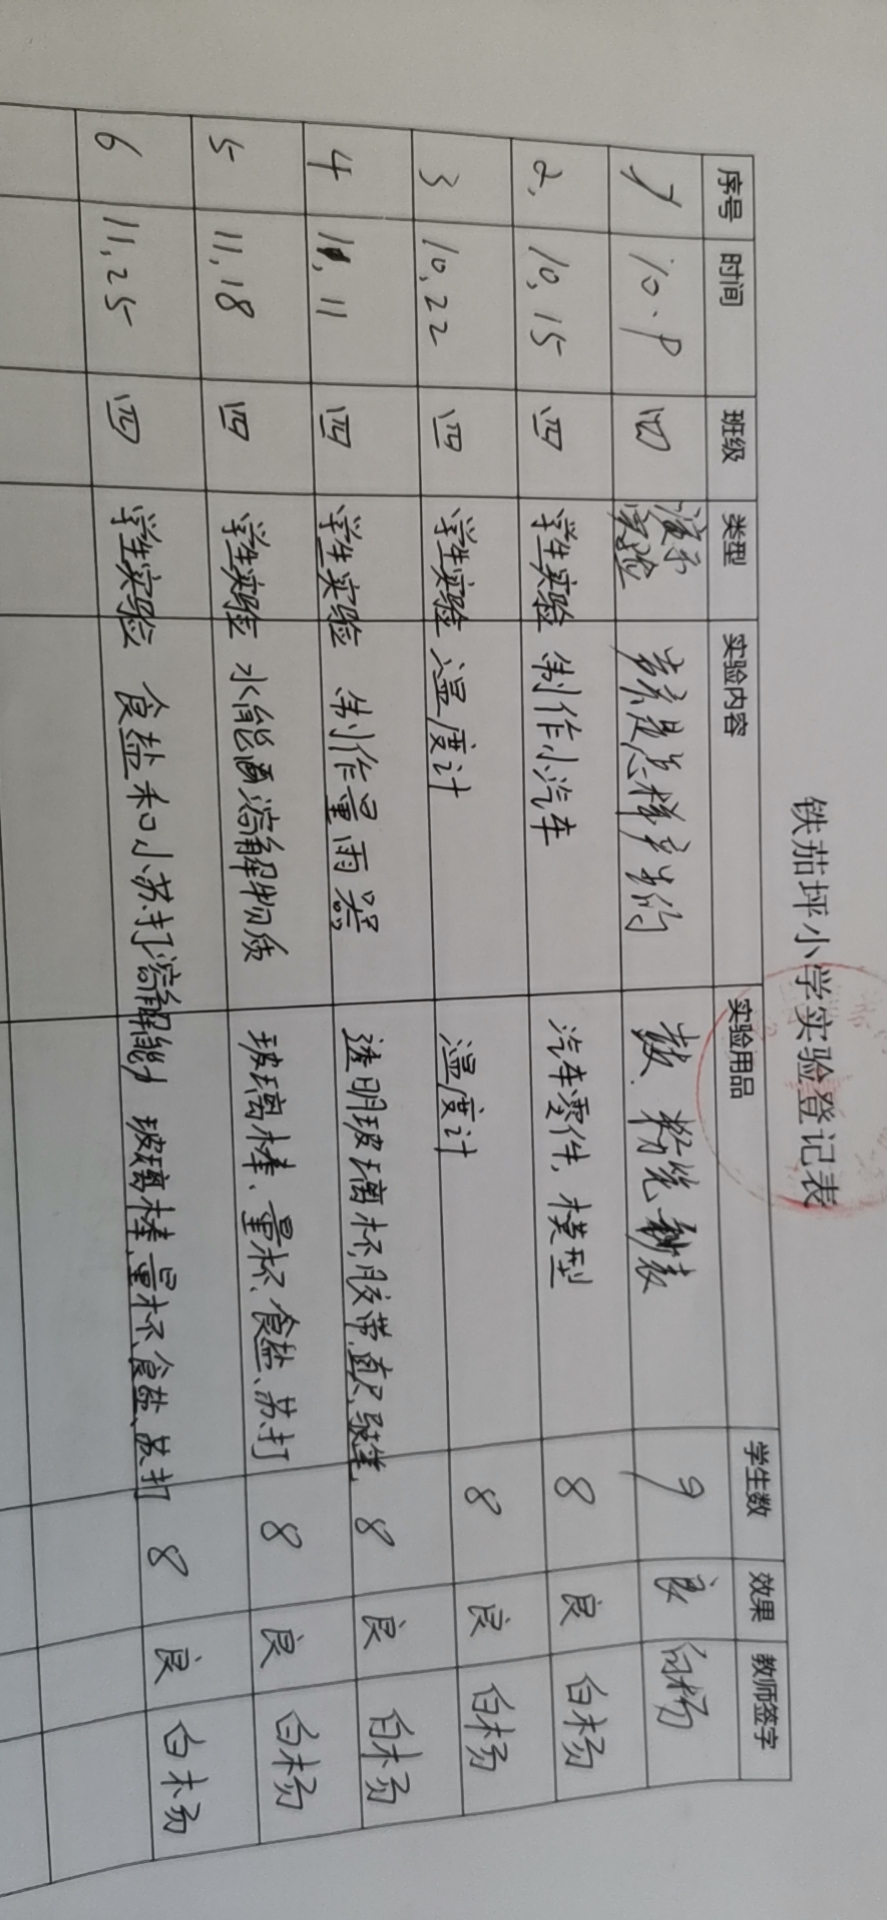 铁茄坪小学实验登记表
序号 时间 班级 类型 实验内容 实验用品 学生数 效果 教师签字
1 10.9 四 演示实验 声音是怎样产生的 鼓. 粉笔 秒表 9 良 白杨
2, 10,15 四 学生实验 制作小汽车 汽车零件,模型 8 良 白杨
3 10,22 四 学生实验 温度计 温度计 8 良 白杨
4 11,11 四 学生实验 制作量雨器 透明玻璃杯,胶带,直尺, 8 良 白杨
5 11,18 四 学生实验 水能溶解物质 玻璃棒、量杯、食盐、苏打 8 良 白杨
6 11,25 四 学生实验 食盐和小苏打溶解能力 玻璃棒,量杯、食盐、苏打 8 良 白杨